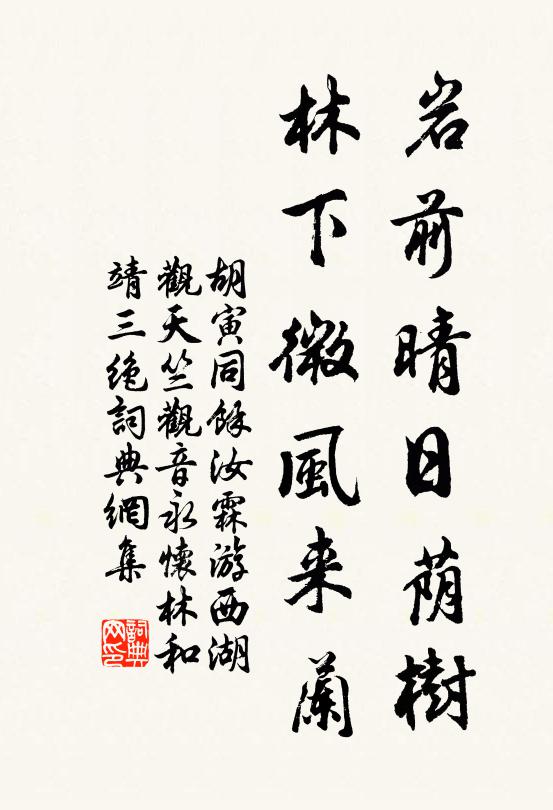 岩前晴日荫樹
林下微風来蘭
胡寅同餘汝霖游西湖
觀天竺觀音永懷林和
靖三绝詞典網集
詞典
网印